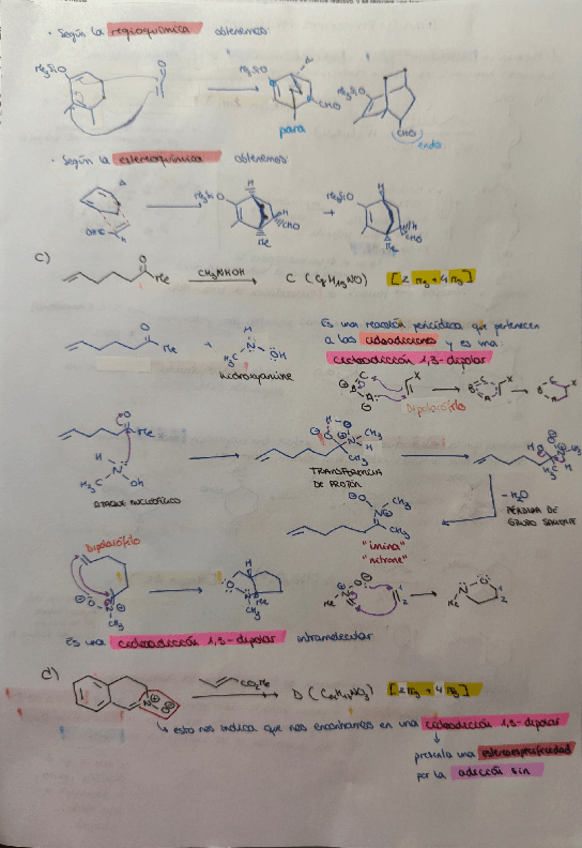 · Según la regioquímica obtenemos:
Me₃SiO
O
Me₃SiO
CHO
para
Me₃SiO
CHO
endo
· Según la estereoquímica obtenemos:
OHC
H
Me₃SiO
H
H
CHO
Me
+
Me₃SiO
H
H
CHO
Me
c)
O
Me
CH₃NHOH
C (C₉H₁₇NO)
[2πs + 4πs]
O
Me
+
H
N
H₃C
OH
hidroxyamine
Es una reacción pericíclica que pertenecen
a las cicloadiciones y es una:
cicloadición 1,3-dipolar
Dipolarófilo
O
Me
H
N
H₃C
OH
ATAQUE NUCLEÓFILO
CH₃
H
CH₃
TRANSFERENCIA
DE PROTÓN
CH₃
- H₂O
PÉRDIDA DE
GRUPO SALIENTE
O
CH₃
N
CH₃
"imina"
"nitrone"
Dipolarófilo
O
N
CH₃
H
O
N
Me
Me
N
O
Es una cicloadición 1,3-dipolar intramolecular
d)
CO₂Me
[2πs + 4πs]
↳ esto nos indica que nos encontramos en una cicloadición 1,3-dipolar
presenta una estereoespecificidad
por la adición sin